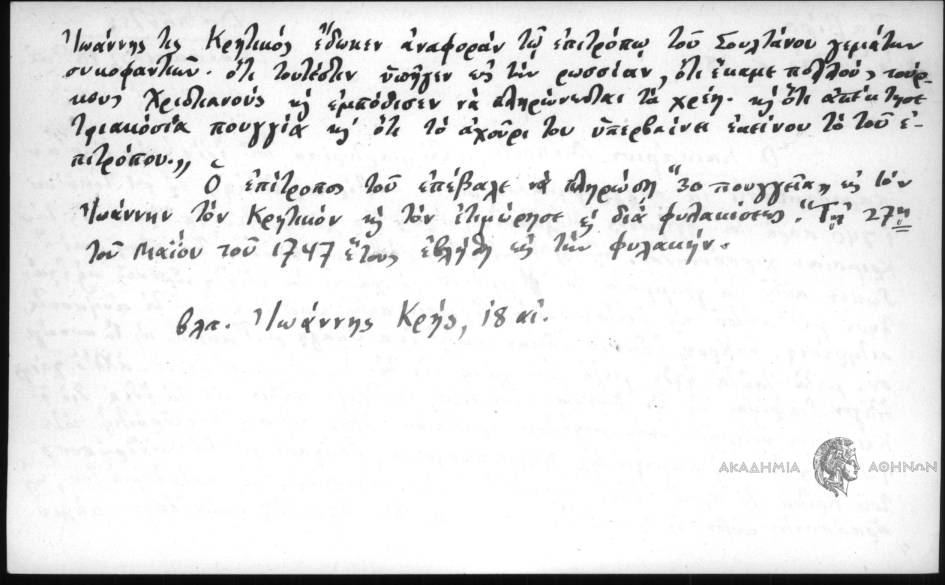 Ἰωάννης τις Κρητικός ἔδωκεν ἀναφοράν τῷ ἐπιτρόπῳ τοῦ Σουλτάνου γεμάτην
συκοφαντιῶν. ὅτι τουτέστιν ὑπῆγεν εἰς τὴν ρωσσίαν, ὅτι ἔκαμε πολλούς τούρ-
κους Χριστιανούς κ̀ ἐμπόδισεν νὰ πληρώνεσται τὰ χρέη. κ̀ ὅτι ἀπέκτησε
τριακόσια πουγγία κ̀ ὅτι τὸ ἀχοῦρι του ὑπερβαίνει ἐκείνου τὸ τοῦ ἐ-
πιτρόπου.„
Ὁ ἐπίτροπος τοῦ ἐπέβαλε νὰ πληρώσῃ "30 πουγγεῖα„ εἰς τὸν
Ἰωάννην τὸν Κρητικόν κ̀ τὸν ἐτιμώρησε κ̀ διά φυλακίσεως. "Τῇ 27ῃ
τοῦ Μαΐου τοῦ 1747 ἔτους ἐβλήθη εἰς τὴν φυλακήν.
βλπ. Ἰωάννης Κρής, 18 αἰ.
ΑΚΑΔΗΜΙΑ ΑΘΗΝΩΝ